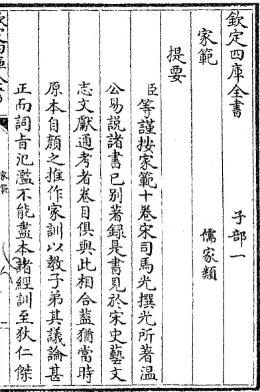 欽定四庫全書　子部一
家範　儒家類
提要
臣等謹按家範十卷宋司馬光撰光所著溫
公易說諸書已別著錄是書見於宋史藝文
志文獻通考者卷目俱與此相合蓋猶當時
原本自顏之推作家訓以教子弟其議論甚
正而詞旨氾濫不能盡本諸經訓至狄仁傑